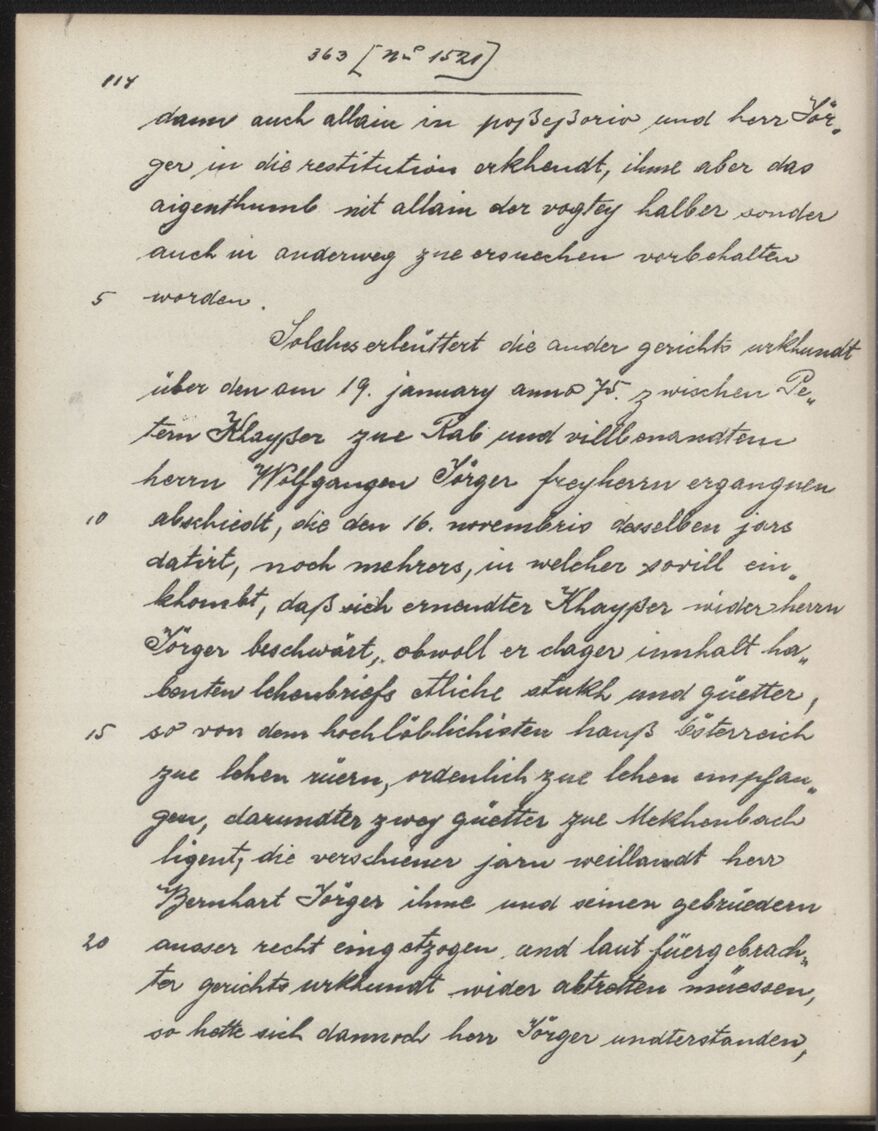 363 [No 1521]
114
dann auch allain in poßeßorio und herr Jör„
ger in die restitution erkhendt, ihme aber das
aigenthumb nit allain der vogtey halber sonder
auch in anderweg zue ersuechen vorbehalten
5 worden.
Solches erleüttert die ander gerichts urkhundt
über den am 19. january anno 75. zwischen Pe„
tern Khayßer zue Rab und villbenandtem
herrn Wolfgangen Jörger freyherrn ergangnen
10 abschiedt, die den 16. novembris desselben jars
datirt, noch mehrers, in welcher sovill ein„
khombt, daß sich ernendter Khayßer wider herrn
Jörger beschwärt, obwoll er dager innhalt ha„
benten lehenbriefs etliche stukh und güetter,
15 so von dem hochlöblichisten hauß Österreich
zue lehen rüern, ordenlich zue lehen empfan„
gen, darundter zwey güetter zue Mekhenbach
ligent, die verschiener jarn weillandt herr
Bernhart Jörger ihme und seinen gebrüedern
20 ausser recht eingetzogen und laut füergebrach„
ter gerichts urkhundt wider abtretten müessen,
so hette sich dannoch herr Jörger undterstanden,